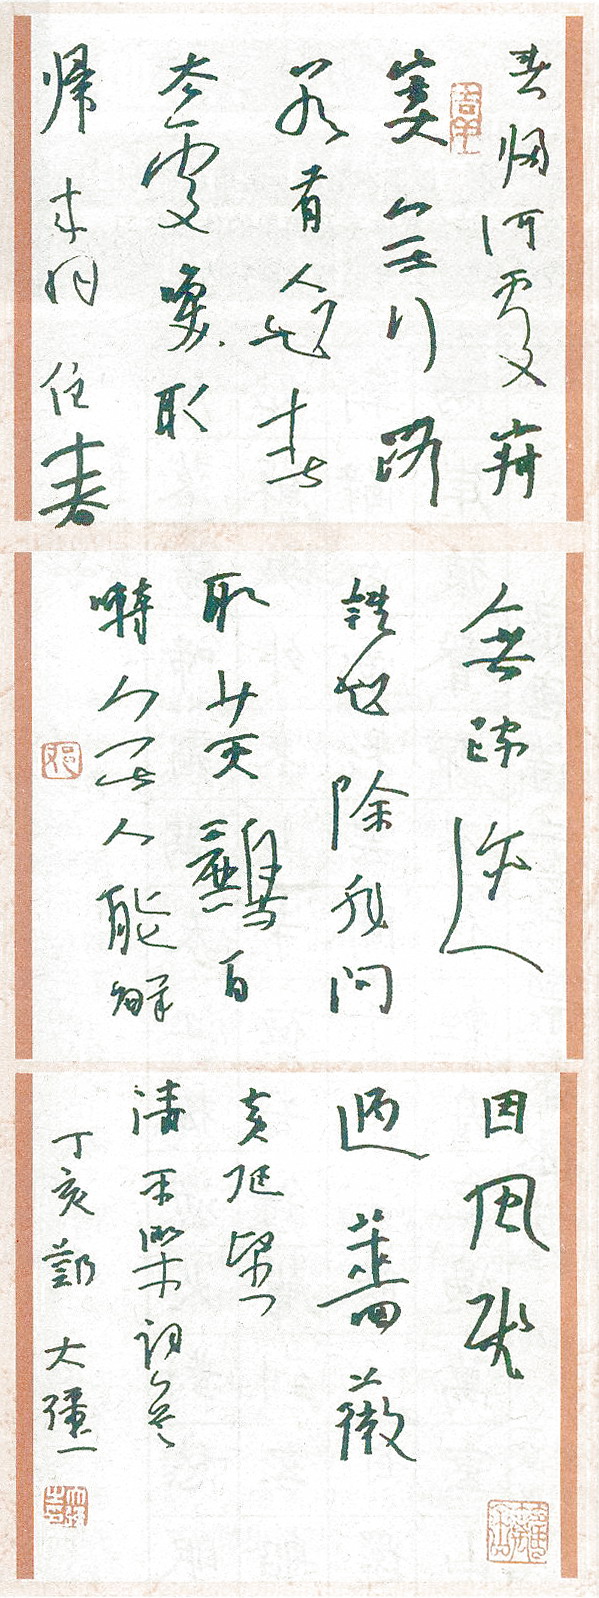 春歸何處寂
寞無行路
若有人知春
去處喚取
歸來同住春
無踪迹
誰知除非問
取黃鸝百
囀無人能解
因風飛
過薔薇
黃庭堅
清平樂詞
丁亥 大疆